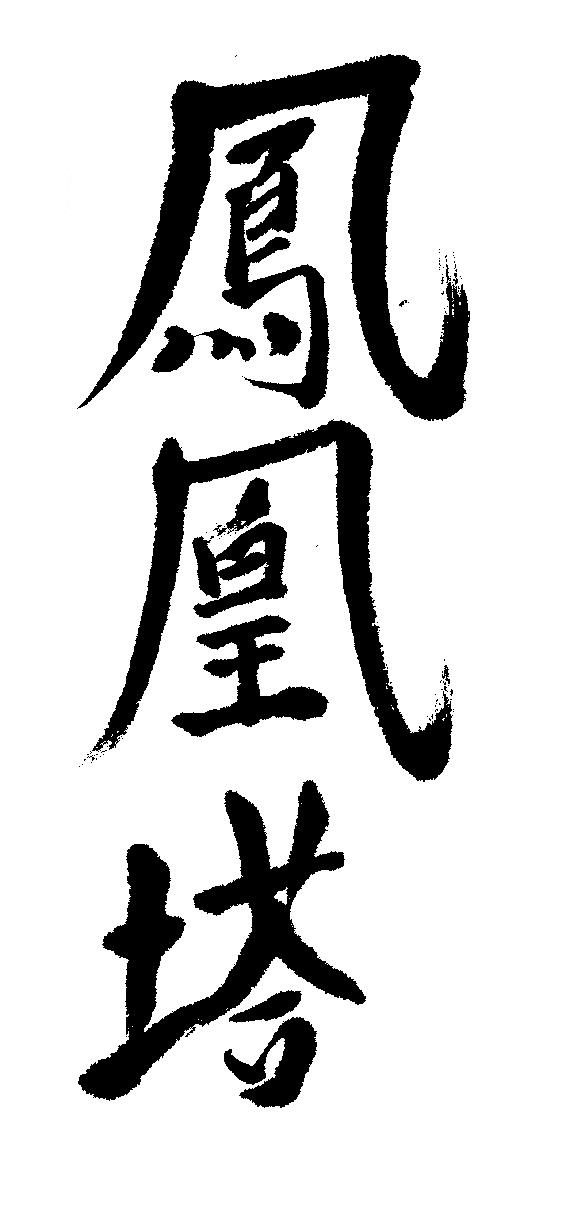 鳳凰塔